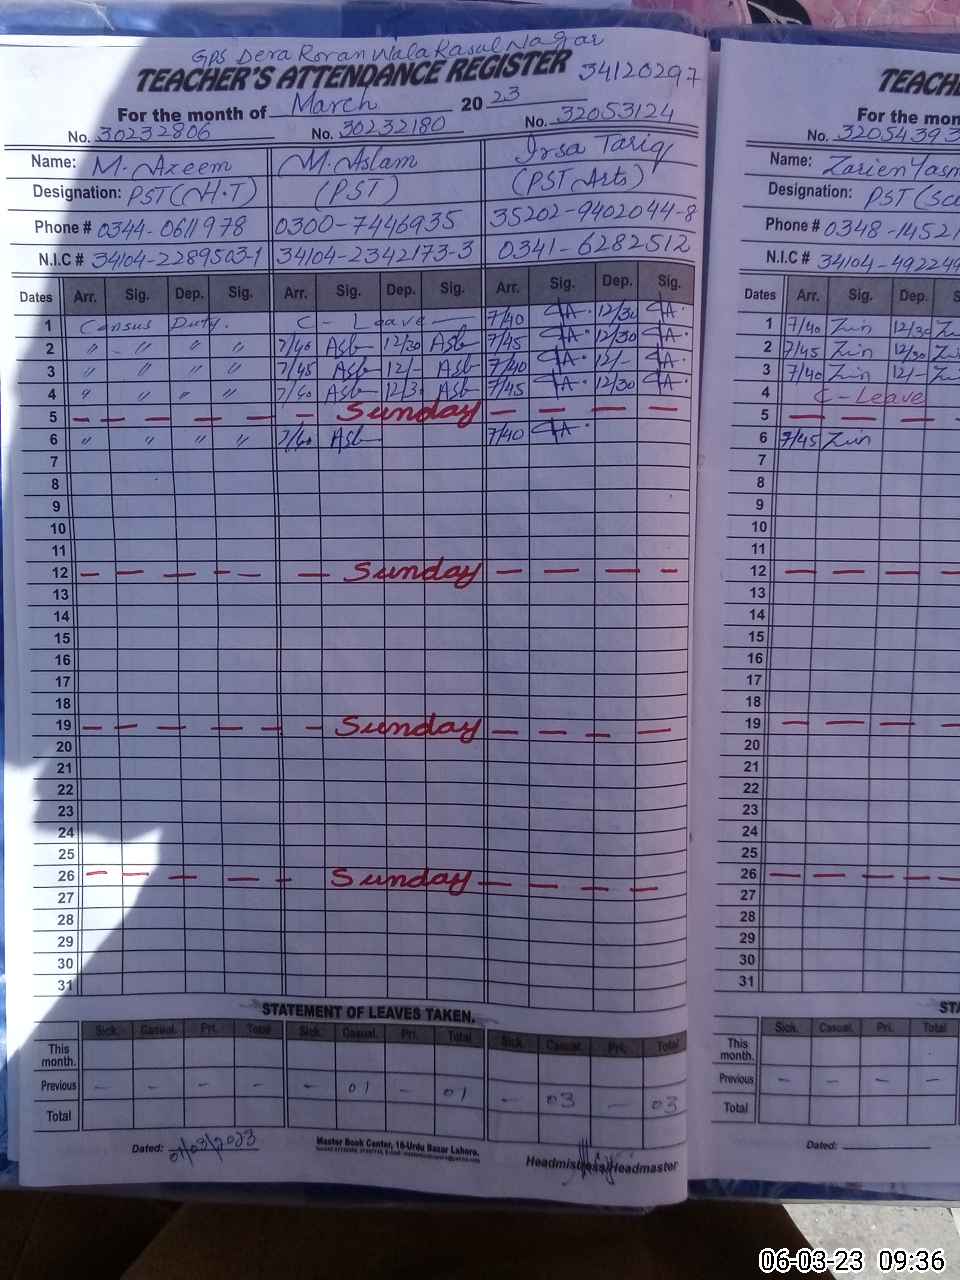 GPS Dera Roran Wala Rasul Nagar
TEACHER'S ATTENDANCE REGISTER 34120297
For the month of March 2023
No. 30232806 No. 30232180 No. 32053124
Name: M. Azeem M. Aslam Irsa Tariq
Designation: PST (H.T) (PST) (PST Arts)
Phone # 0344-0611978 0300-7446935 35202-9402044-8
N.I.C # 34104-2289503-1 34104-2342173-3 0341-6282512
Dates Arr. Sig. Dep. Sig. Arr. Sig. Dep. Sig. Arr. Sig. Dep. Sig.
1 Census Duty. C- Leave 7/40 12/30
2 〃 - 〃 〃 〃 7/40 Asb 12/30 Asb 7/45 12/30
3 〃 〃 〃 〃 7/45 Asb 12/- Asb 7/40 12/-
4 〃 〃 〃 〃 7/40 Asb 12/30 Asb 7/45 12/30
5 Sunday
6 〃 〃 〃 〃 7/40 Asb 7/40
7
8
9
10
11
12 Sunday
13
14
15
16
17
18
19 Sunday
20
21
22
23
24
25
26 Sunday
27
28
29
30
31
STATEMENT OF LEAVES TAKEN.
Sick. Casual. Pri. Total Sick. Casual. Pri. Total Sick. Casual. Pri. Total
This month.
Previous - - - - - 01 - 01 - 03 - 03
Total
Dated: 01/03/2023 Master Book Center, 16-Urdu Bazar Lahore.
Headmistress/Headmaster
TEACHE
For the mon
No. 32054393
Name: Zarien Yasm
Designation: PST (Sc
Phone # 0348-14521
N.I.C # 34104-492249
Dates Arr. Sig. Dep. S
1 7/40 Zin 12/30
2 7/45 Zin 12/30
3 7/40 Zin 12/-
4 C-Leave
5
6 7/45 Zin
7
8
9
10
11
12
13
14
15
16
17
18
19
20
21
22
23
24
25
26
27
28
29
30
31
STA
Sick. Casual. Pri. Total
This month.
Previous - - - -
Total
Dated:
06-03-23 09:36